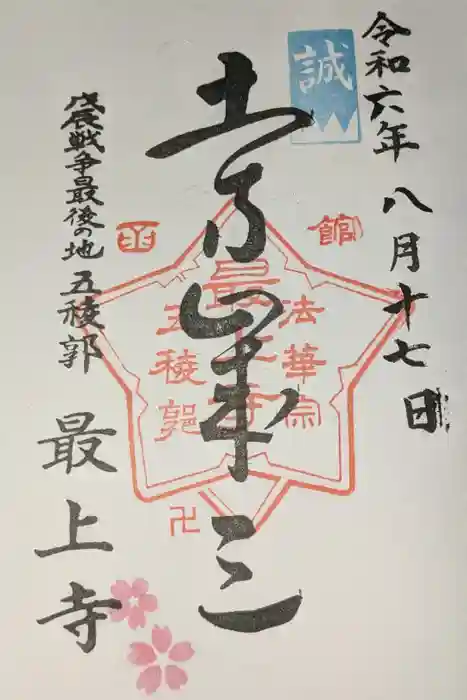 令和六年 八月十七日
誠
土方歳三
戊辰戦争最後の地 五稜郭
最上寺
函館
法華宗
最上寺
五稜郭
卍